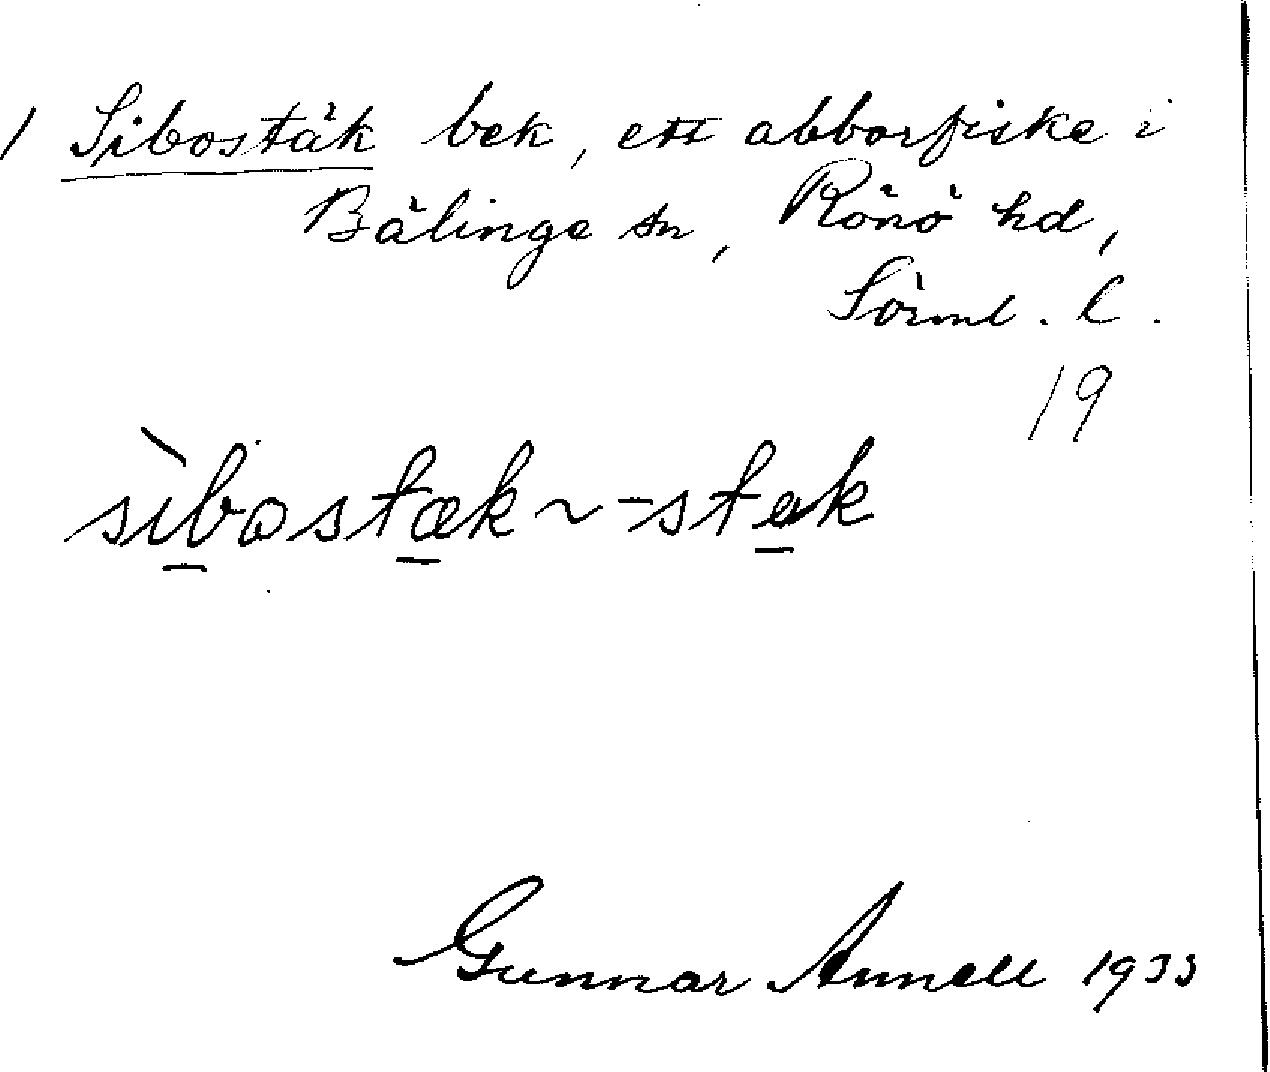 / Sibostäk bek, ett abborfiske i
Bälinge sn, Rönö hd,
Sörml. l.
19
sìbostæk ~ -stak
Gunnar Annell 1933